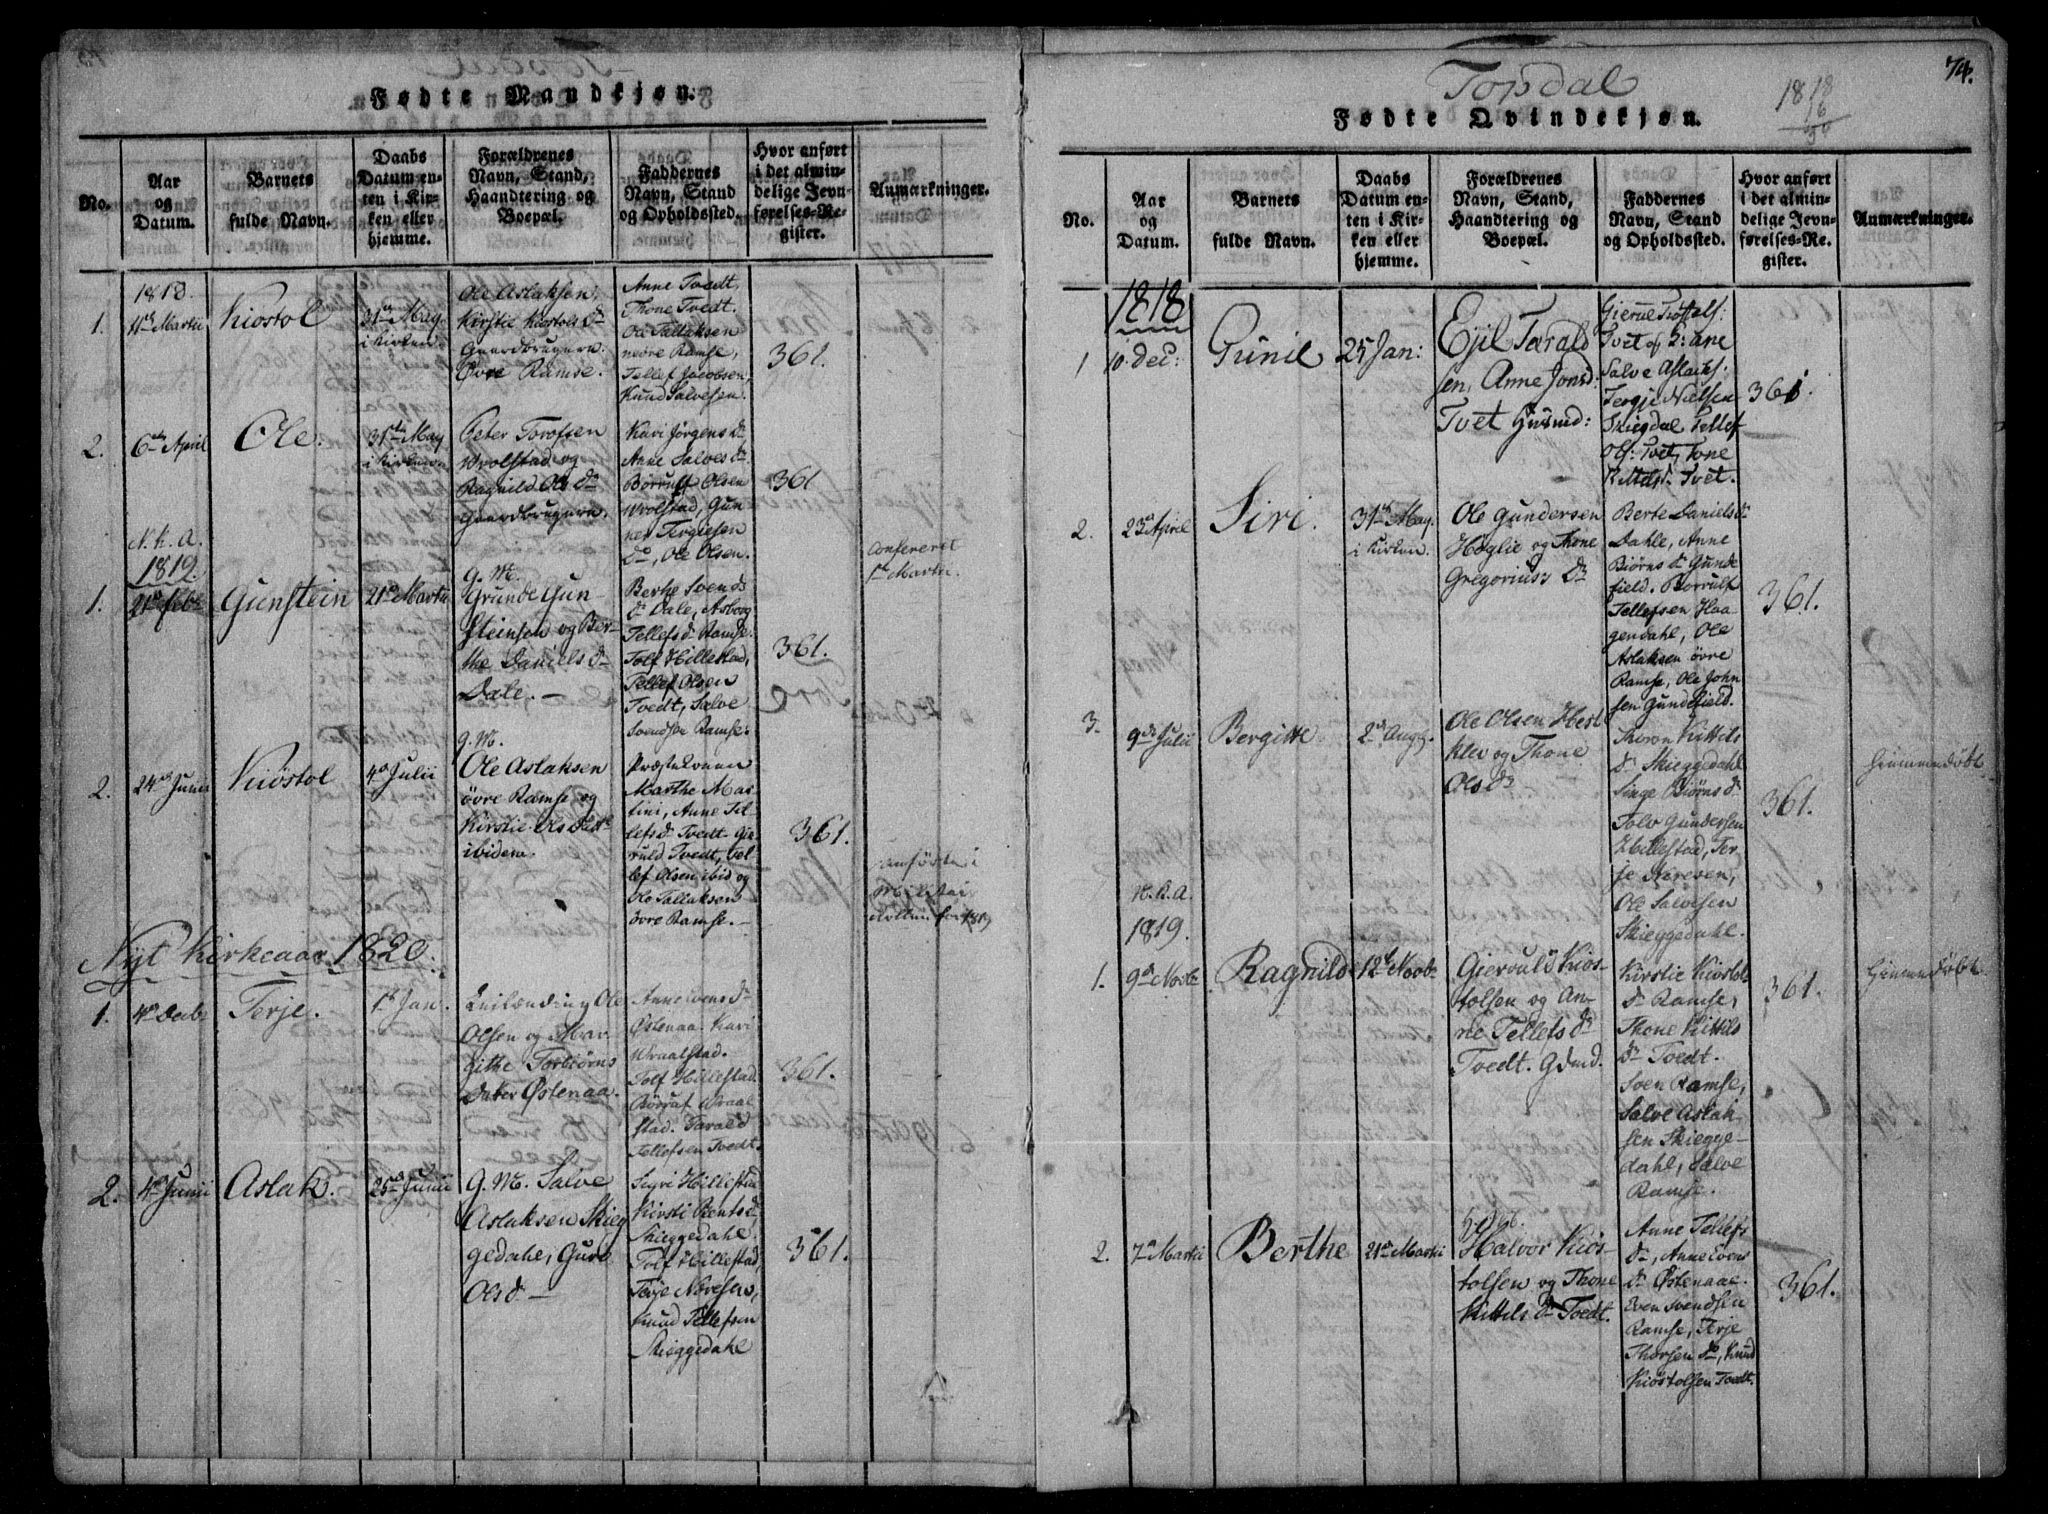 Fødte Mandkjøn.
No.
Aar
og
Datum.
Barnets
fulde Navn.
Daabs
Datum en-
ten i Kir-
ken eller
hjemme.
Forældrenes
Navn, Stand,
Haandtering og
Boepæl.
Faddernes
Navn, Stand
og Opholdssted.
Hvor anført
i det almin-
delige Jevn-
førelses-Re-
gister.
Anmærkninger.
1.
1818.
11te Martii
Kiøstol
31te May
i Kirken
Ole Aslaksen,
Kirstie Kiøstols Dr
Gaardbrugere
Øvre Ramse.
Anne Tvedt,
Thone Tvedt.
Ole Tallaksen
nedre Ramse,
Tellef Jacobsen,
Knud Salvesen.
361.
2.
6te April
Ole.
31te May
i Kirken
Peter Torofsen
Wrolstad og
Ragnild Ols Dr
Gaardbrugere.
Kari Jörgens dr
Anne Salves dr
Borrulf Olsen
Wrolstad, Gun-
ner Tergiesen
Do, Ole Olsen.
361
N.k.a.
1819.
1.
21de Febr
Gunstein
21de Martii
g. M.
Grunde Gun-
steinsen og Ber-
the Daniels dr
Dale. —
Berthe Svends
dr Dale, Asborg
Tellefs dr Ramse.
Tolf Hillestad,
Tellef Olsen
Tvedt, Salve
Svendsen Ramse.
361.
Confereret
1te Martii.
2.
24de Junii
Kiöstol
4de Julii
g. M.
Ole Aslaksen
övre Ramse og
Kirstie
ibidem.
Marthe Mar-
tini, Anne Tel-
lefs dr Tvedt, Gie-
ruld Tvedt, Tel-
lef Olsen ibid og
Ole Tallaksen
övre Ramse. —
361.
Nyt Kirkeaar 1820.
1.
4de Decbr
Terje.
1te Jan.
Ole
Olsen og Mar-
githe Torbiörns
Datter Østenaa.
Anne Evens dr
Østenaa. Kari
Wraalstad.
Tolf Hillestad.
Börruf Wraal
stad. Tarald
Tellefsen Tvedt.
361.
2.
4de Junii
Aslak.
25de Junii
G. M. Salve
Aslaksen Skieg
gedahl, Gure
Olsd —
Sigri Hillestad
Kirsti Bentsd.
Skieggedahl.
Tolf Hillestad,
Terje Nevesen,
Knud Tellefsen
Skieggedahl
361.
Topdal
1818
74.
Fødte Qvindekjøn.
No.
Aar
og
Datum.
Barnets
fulde Navn.
Daabs
Datum en-
ten i Kir-
ken eller
hjemme.
Forældrenes
Navn, Stand,
Haandtering og
Boepæl.
Faddernes
Navn, Stand
og Opholdssted.
Hvor anført
i det almin-
delige Jevn-
førelses-Re-
gister.
Anmærkninger.
1818
1
10 Dec:
Gunil
25 Jan:
Ejil Tarald
sen, Anne Jonsd:
Tvet Husmd:
Salve Aslachs.
Tergje Nielsen
Skiegdal, Tellef
Ols: Tvet, Tone
Kittelsd. Tvet.
361.
2.
23de April
Siri.
31te May.
i Kirken.
Ole Gundersen
Höglie og Thone
Gregorius Dr
Berte Daniels dr
Dahle, Anne
Biörns dr Gunde
field. Borrulf
Tellefsen Haa-
gendahl, Ole
Aslaksen övre
Ramse, Ole John
sen Gundefield.
361.
3.
9de Julii
Bergitte
2de Aug.
Ole Olsen Hest
klev og Thone
Ols dr
Thoron Kittils
dr Skieggedahl
Singe Biörns dr
Tolv Gundersen
Hillestad, Ter-
je Neresen,
Ole Salvesen
Skieggedahl.
361.
Hiemmedöbt
N.k.a.
1819.
1.
9de Novbr
Ragnild
12te Novbr
Gierruld Kiös-
tolsen og An-
ne Tellefs dr
Tvedt. Gdmd.
Kirstie Kiöstols
dr Ramse,
Thone Kittils
dr Tvedt.
Sven Ramse,
Salve Aslak-
sen Skiegge-
dahl, Salve
Ramse.
361.
Hiemmedöbt
2.
7de Martii
Berthe
21de Martii
Halvor Kiös-
tolsen og Thone
Kittils dr Tvedt.
Anne Tellefs
dr, Anne Evens
dr Østenaae.
Even Svendsen
Ramse, Terje
Thorsen do, Knud
Kiöstolsen Tvedt.
361.